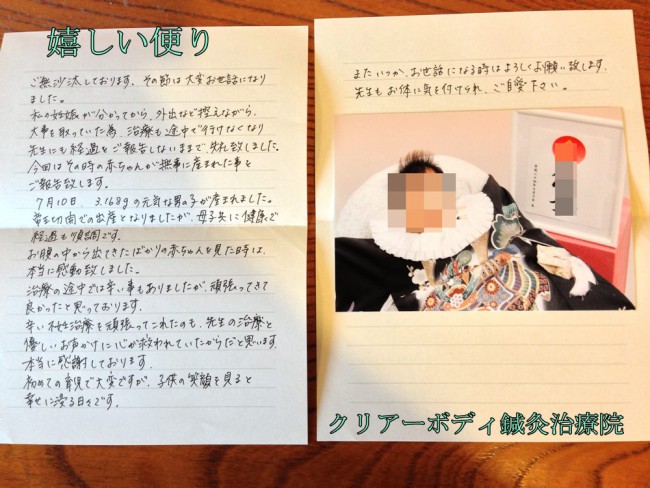 嬉しい便り
ご無沙汰しております。その節は大変お世話になり
ました。
私の妊娠が分かってから、外出など控えながら、
大事を取っていた為、治療も途中で行けなくなり
先生にも経過をご報告しないままで、失礼致しました。
今回はその時の赤ちゃんが無事に産まれた事を
ご報告致します。
7月10日 3,168gの元気な男の子が産まれました。
帝王切開での出産となりましたが、母子共に健康で
経過も順調です。
お腹の中から出てきたばかりの赤ちゃんを見た時は、
本当に感動致しました。
治療の途中では辛い事もありましたが、頑張ってきて
良かったと思っております。
辛い不妊治療を頑張ってこれたのも、先生の治療と
優しいお声がけに心が救われていたからだと思います。
本当に感謝しております。
初めての育児で大変ですが、子供の笑顔を見ると
幸せに浸る日々です。
またいつか、お世話になる時はよろしくお願い致します。
先生もお体に気を付けられ、ご自愛下さい。
クリアーボディ鍼灸治療院